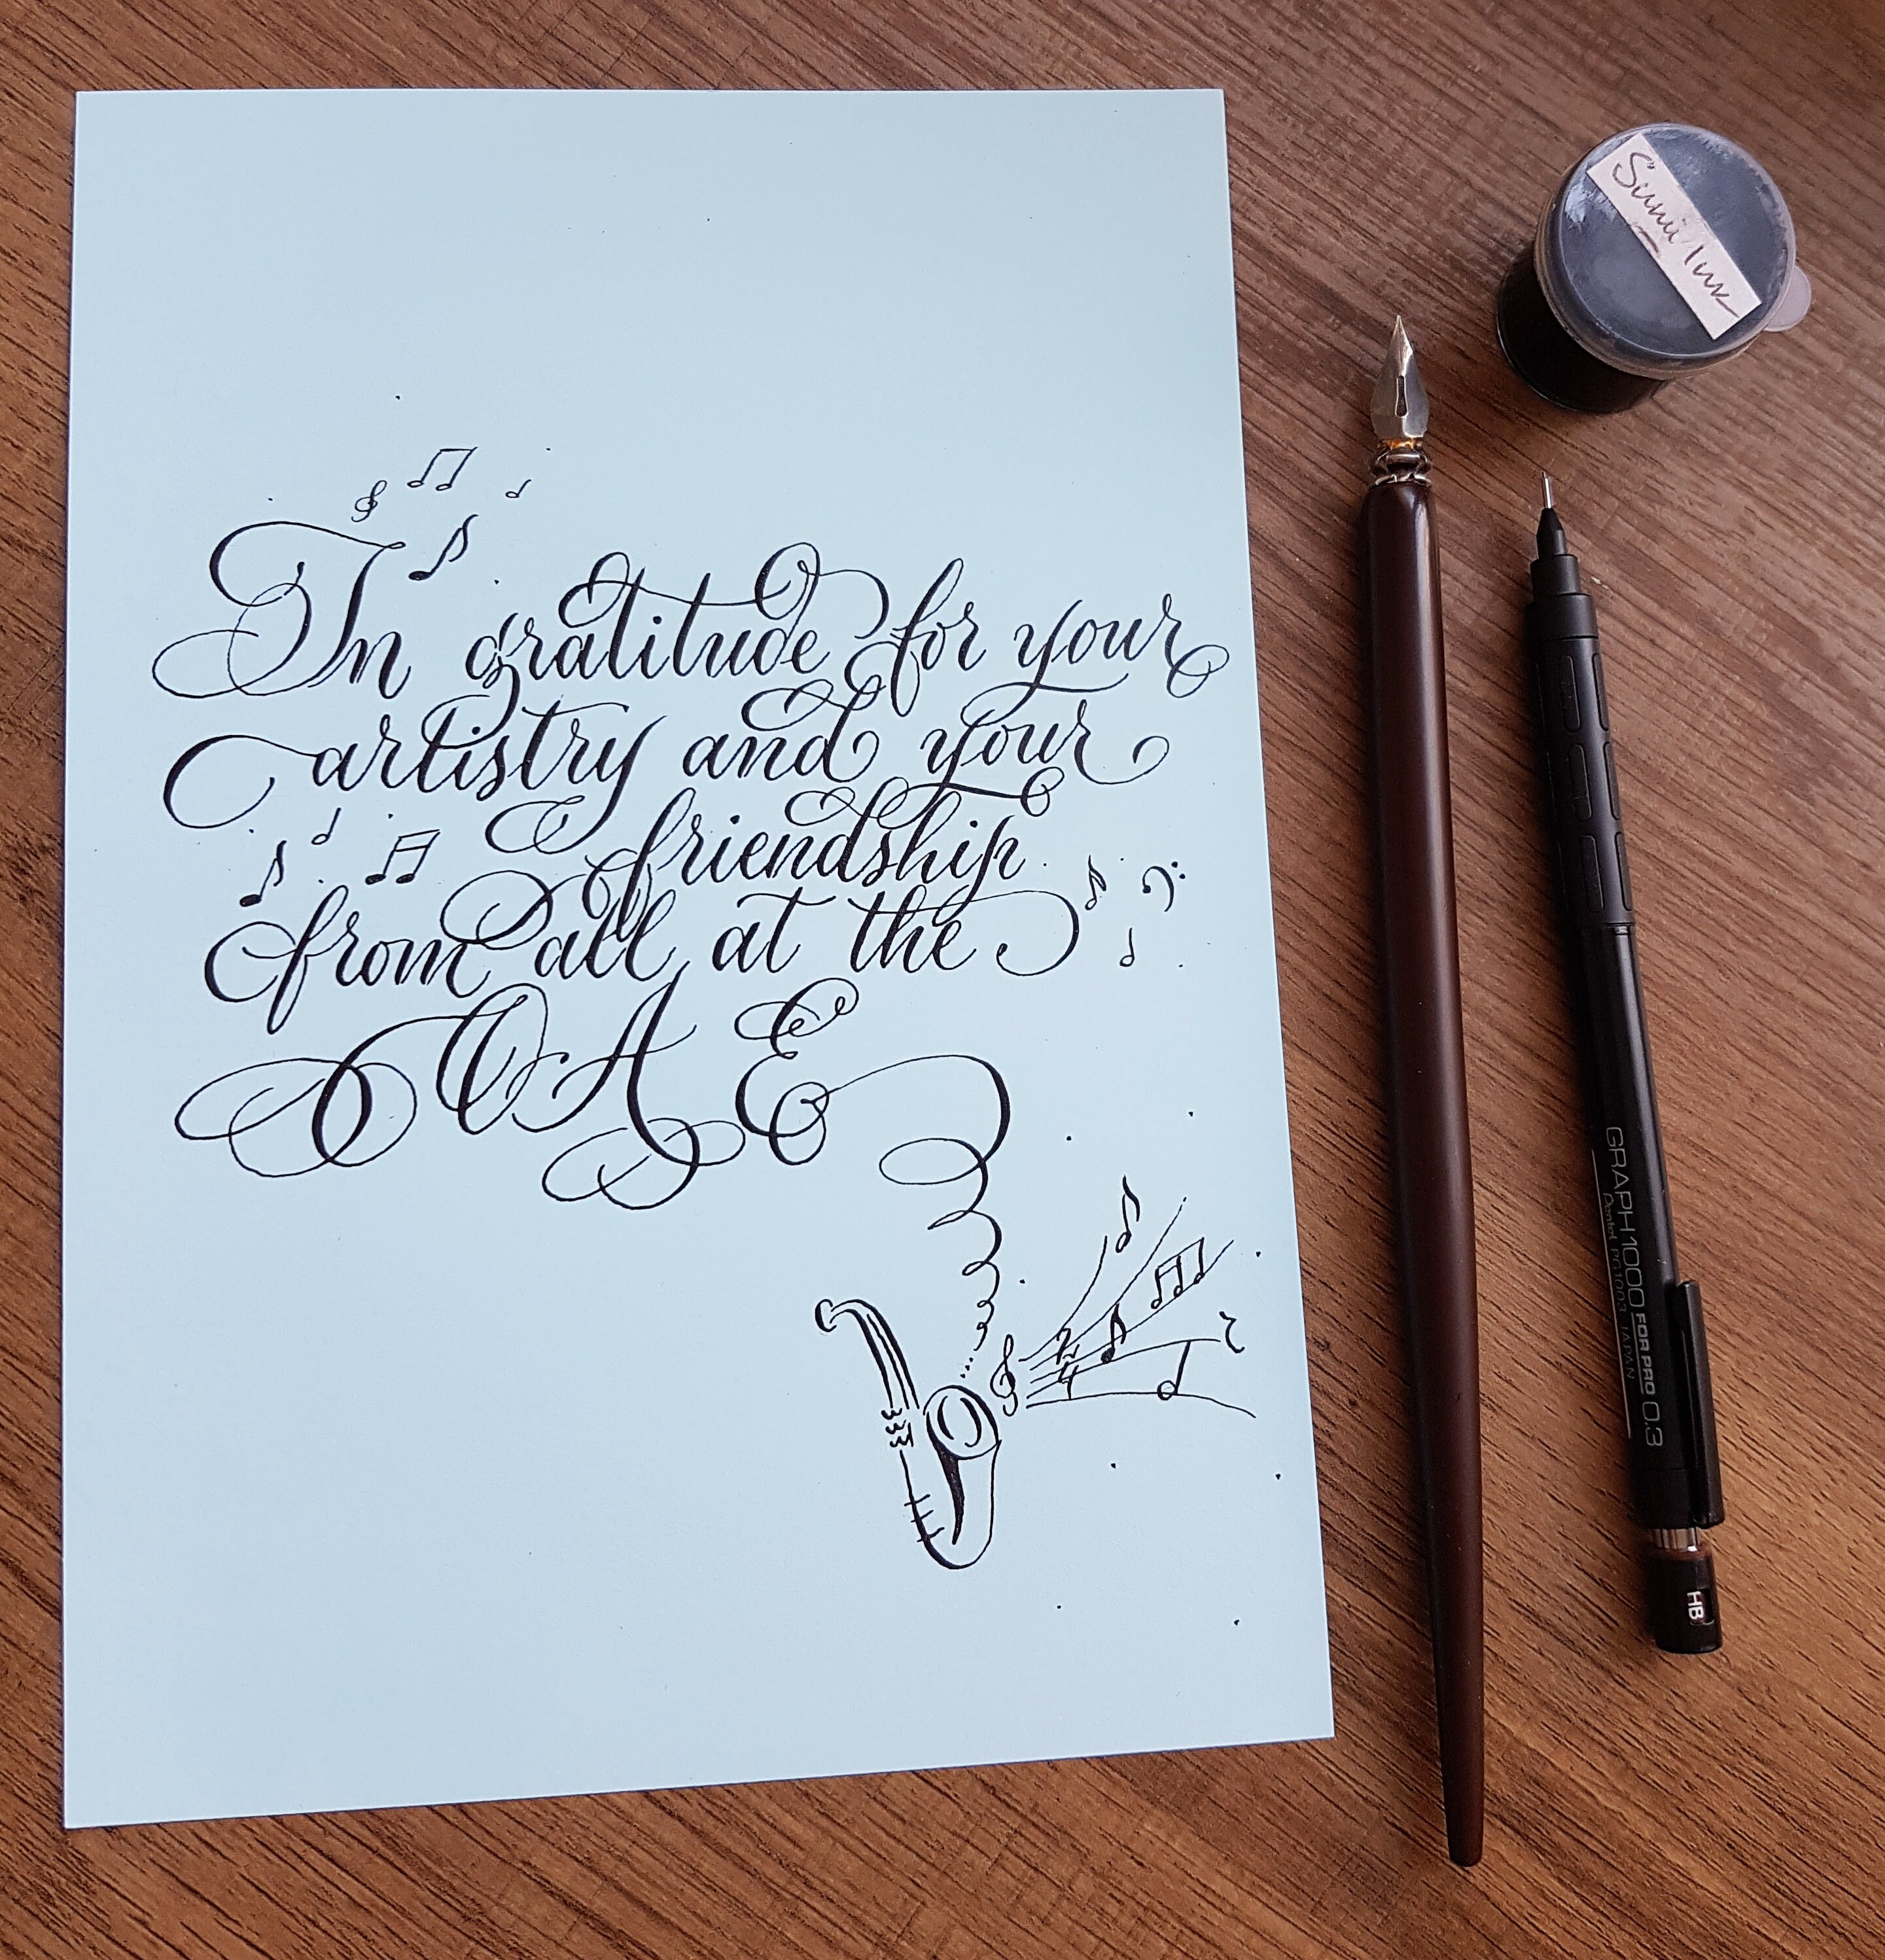 In gratitude for your
artistry and your
friendship
from all at the
OAE
2
4
Sumi Ink
GRAPH 1000 FOR PRO 0.3
Pentel PG1003 JAPAN
HB